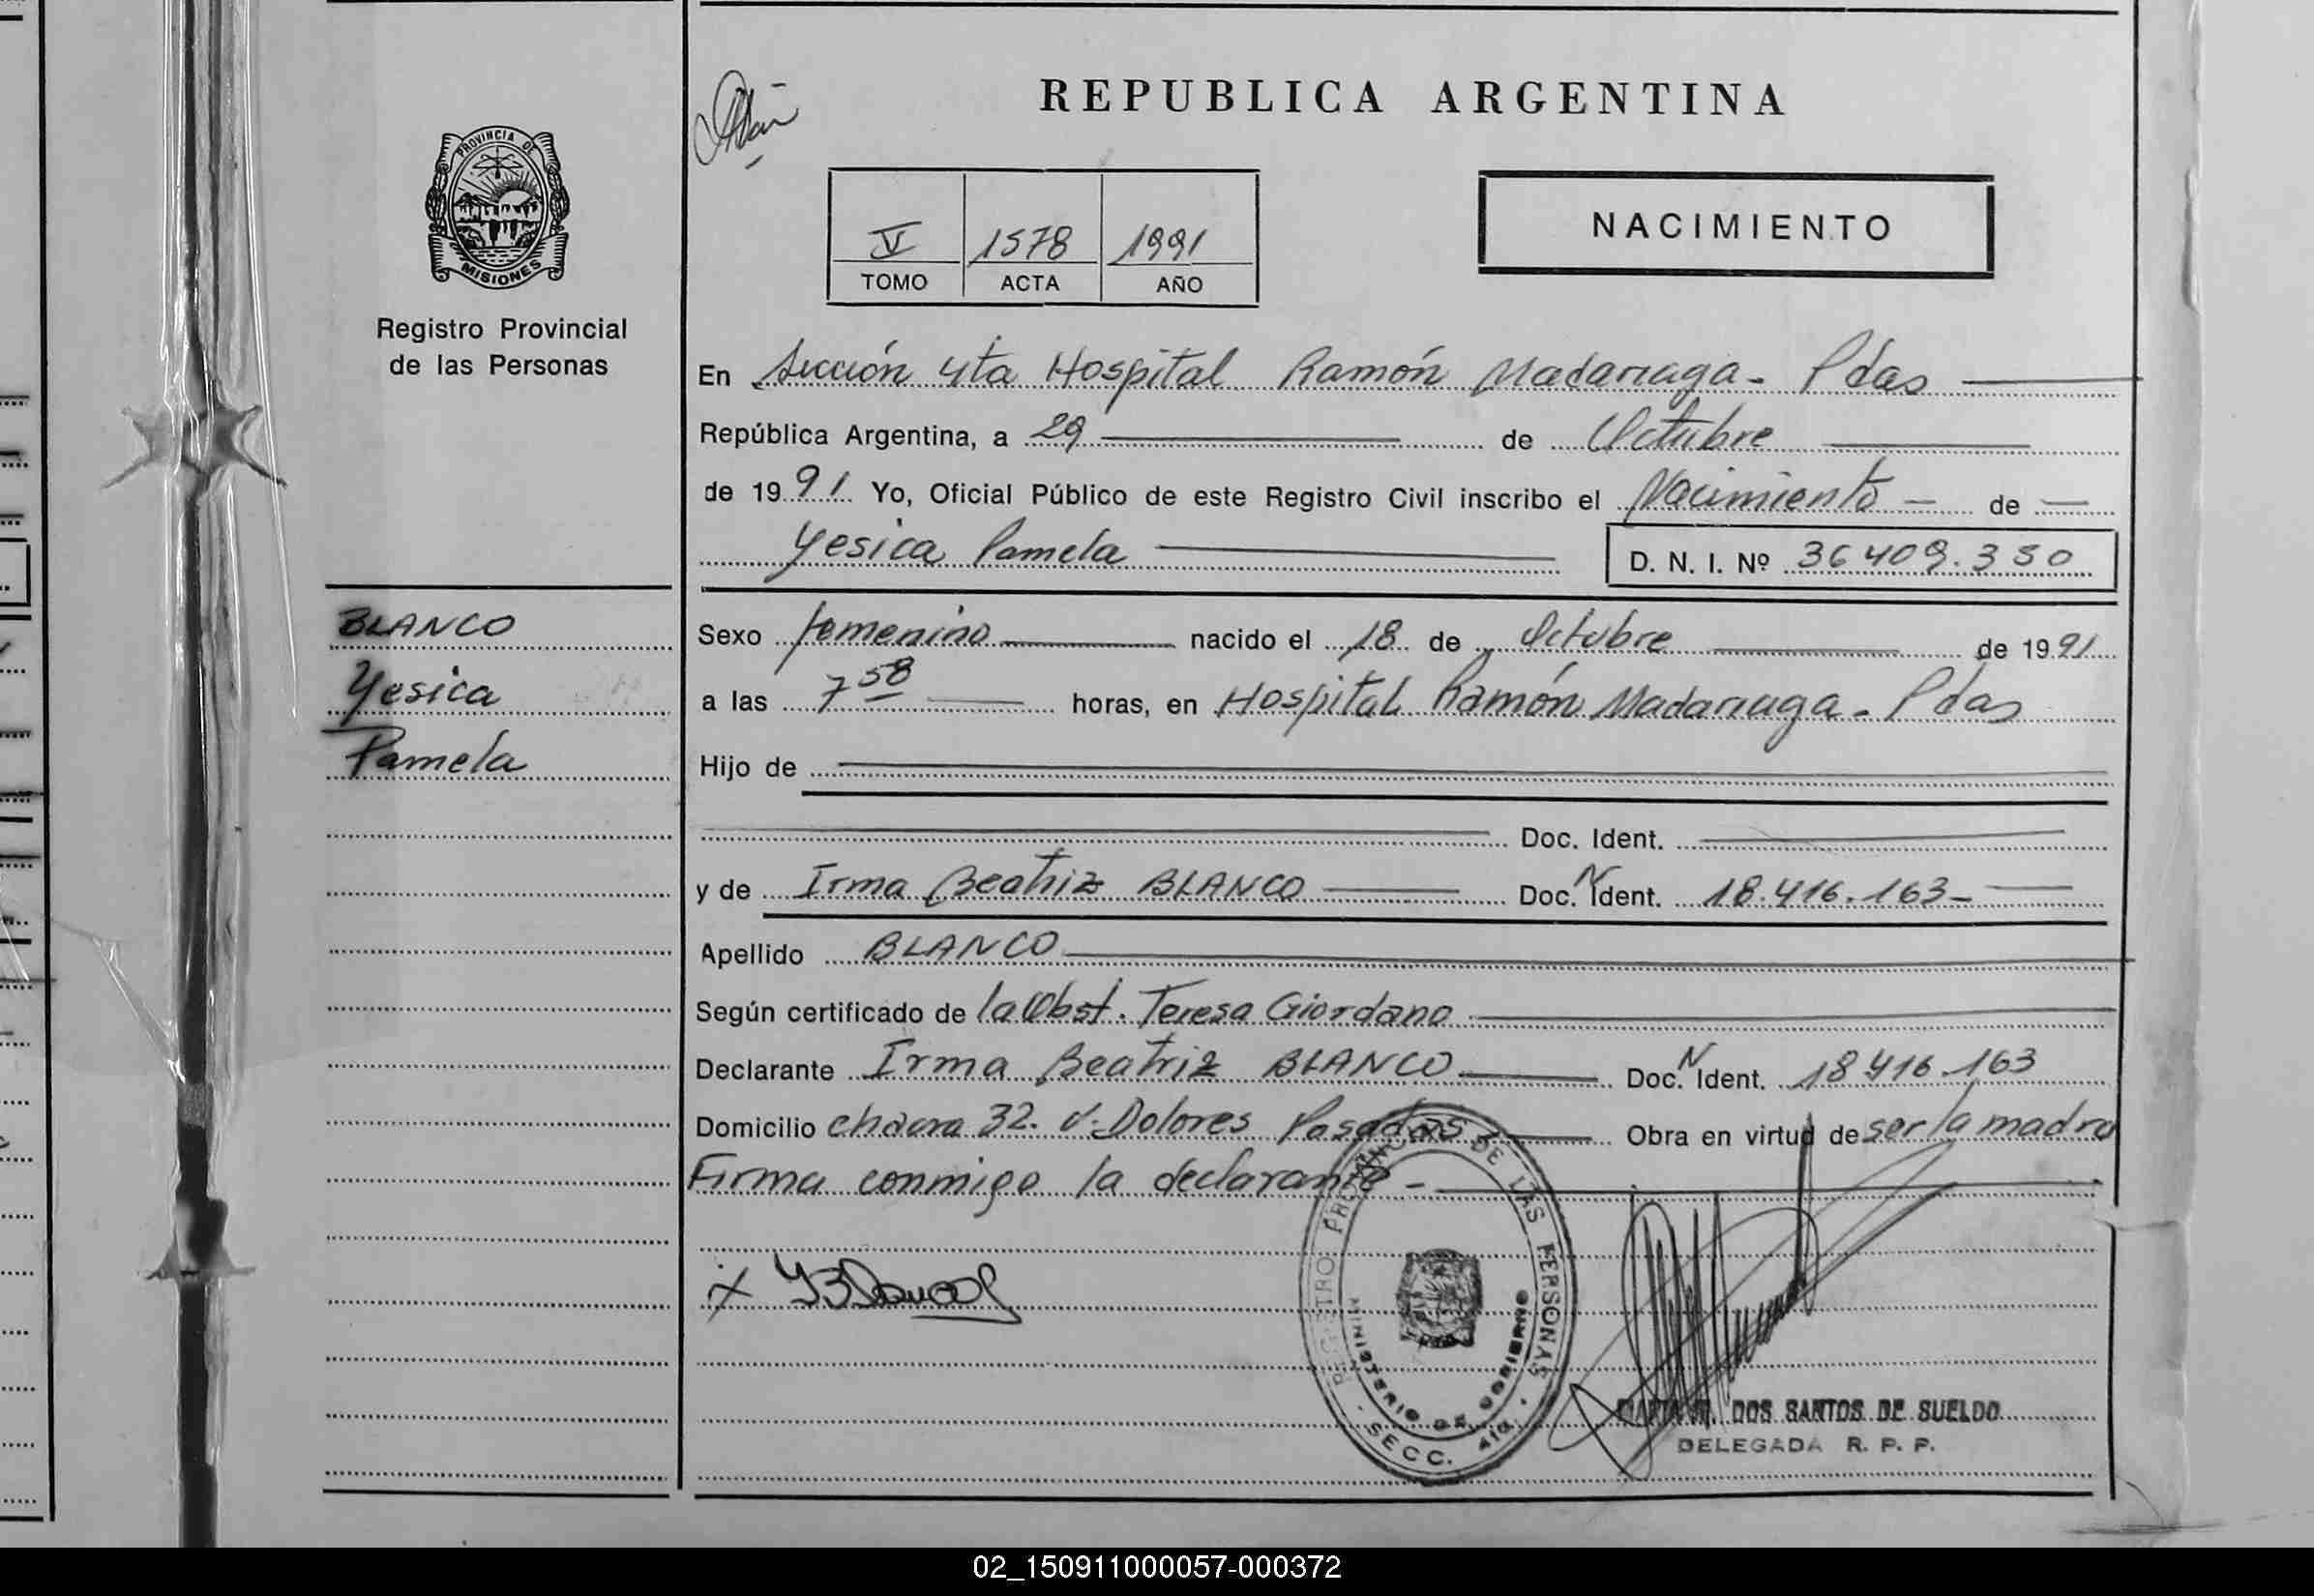 REPUBLICA ARGENTINA
PROVINCIA DE
MISIONES
Registro Provincial
de las Personas
V 1578 1991
TOMO ACTA AÑO
NACIMIENTO
En Sección 4ta Hospital Ramón Madariaga - Pdas
República Argentina, a 29 de Octubre
de 1991 Yo, Oficial Público de este Registro Civil inscribo el Nacimiento - de
Yesica Pamela
D. N. I. Nº 36409.350
BLANCO
Yesica
Pamela
Sexo femenino nacido el 18 de Octubre de 1991
a las 7 58 horas, en Hospital Ramón Madariaga - Pdas
Hijo de
Doc. Ident.
y de Irma Beatriz BLANCO Doc. N Ident. 18.416.163-
Apellido BLANCO
Según certificado de la Obst. Teresa Giordano
Declarante Irma Beatriz BLANCO Doc. N Ident. 18 416.163
Domicilio chacra 32. V. Dolores Posadas Obra en virtud de ser la madre
Firma conmigo la declarante -
x
REGISTRO PROVINCIAL DE LAS PERSONAS
MINISTERIO DE GOBIERNO
SECC. 4ta.
DOS SANTOS DE SUELDO
DELEGADA R. P. P.
02_150911000057-000372